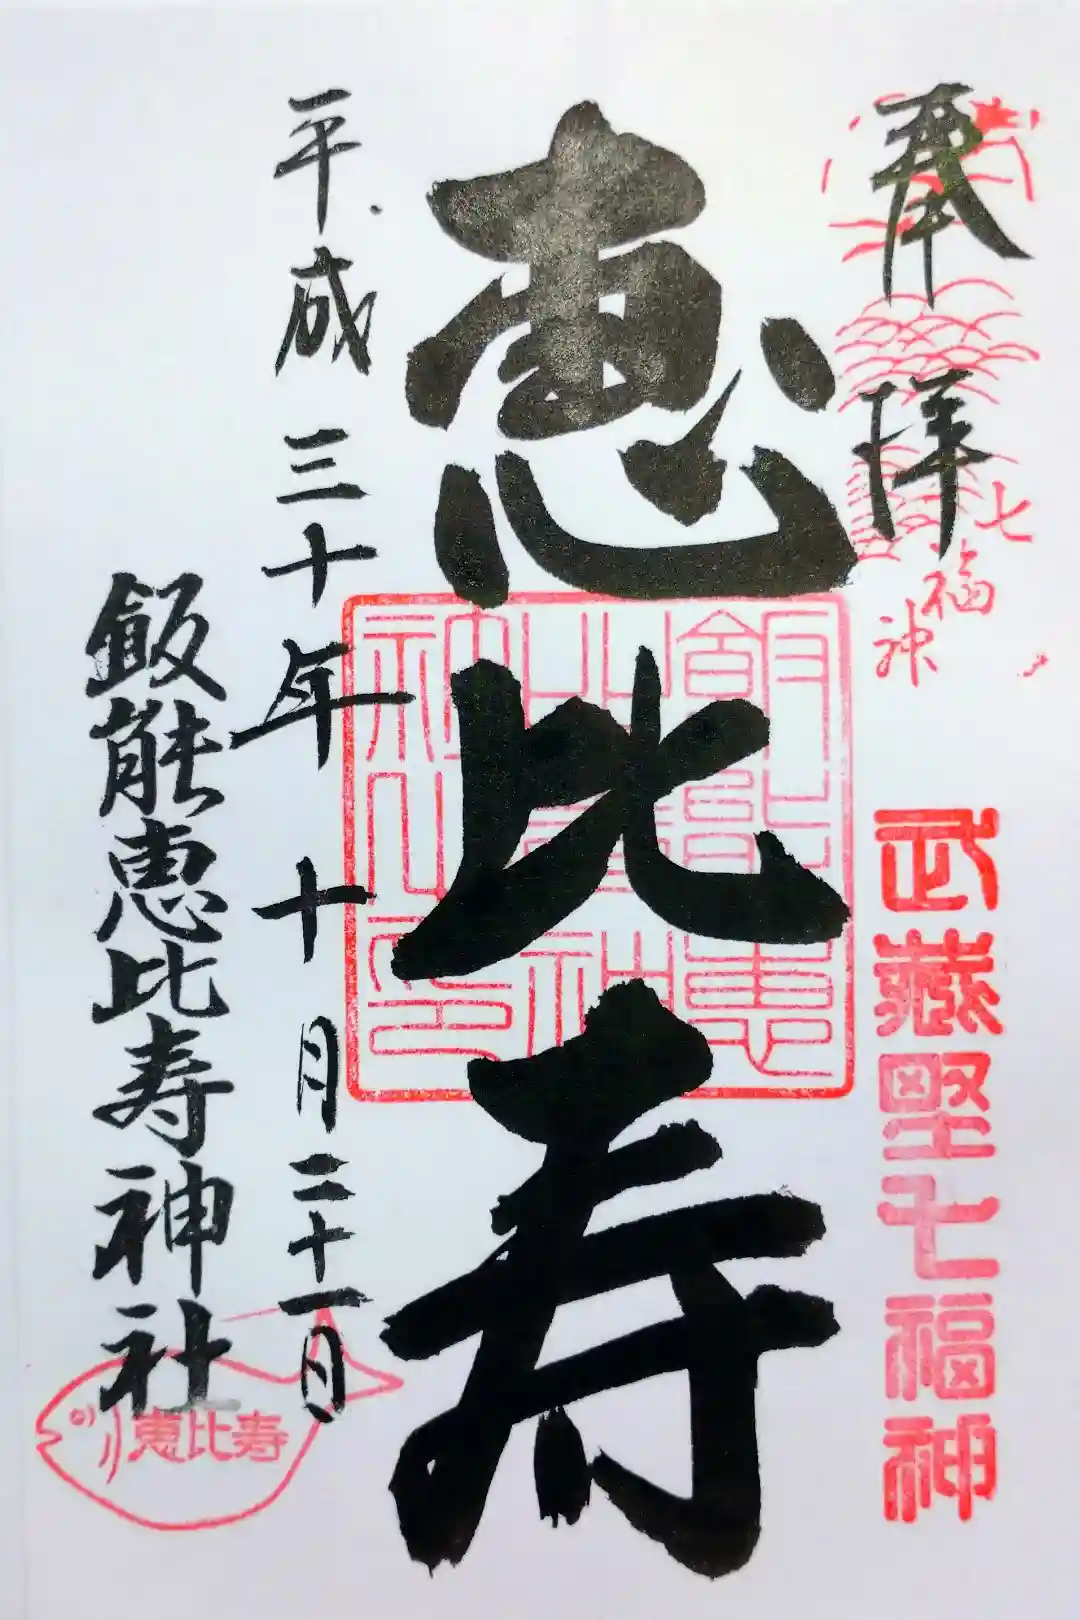 奉拝
七福神
武蔵野七福神
恵比寿
飯能恵
比寿神
社之印
平成三十年十月二十一日
飯能恵比寿神社
恵比寿